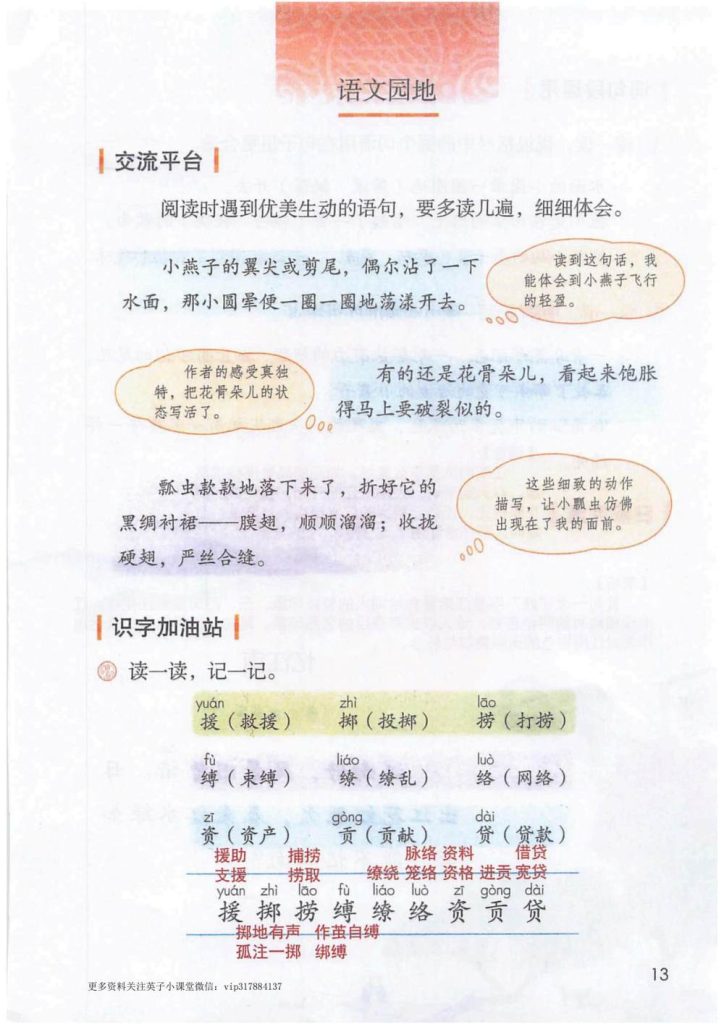 语文园地
交流平台
阅读时遇到优美生动的语句，要多读几遍，细细体会。
小燕子的翼尖或剪尾，偶尔沾了一下
水面，那小圆晕便一圈一圈地荡漾开去。
读到这句话，我
能体会到小燕子飞行
的轻盈。
作者的感受真独
特，把花骨朵儿的状
态写活了。
有的还是花骨朵儿，看起来饱胀
得马上要破裂似的。
瓢虫款款地落下来了，折好它的
黑绸衬裙——膜翅，顺顺溜溜；收拢
硬翅，严丝合缝。
这些细致的动作
描写，让小瓢虫仿佛
出现在了我的面前。
识字加油站
读一读，记一记。
yuán zhì lāo
援（救援） 掷（投掷） 捞（打捞）
fù liáo luò
缚（束缚） 缭（缭乱） 络（网络）
zī gòng dài
资（资产） 贡（贡献） 贷（贷款）
援助 捕捞 脉络 资料 借贷
支援 捞取 缭绕 笼络 资格 进贡 宽贷
yuán zhì lāo fù liáo luò zī gòng dài
援 掷 捞 缚 缭 络 资 贡 贷
掷地有声 作茧自缚
孤注一掷 绑缚
13
更多资料关注英子小课堂微信：vip317884137